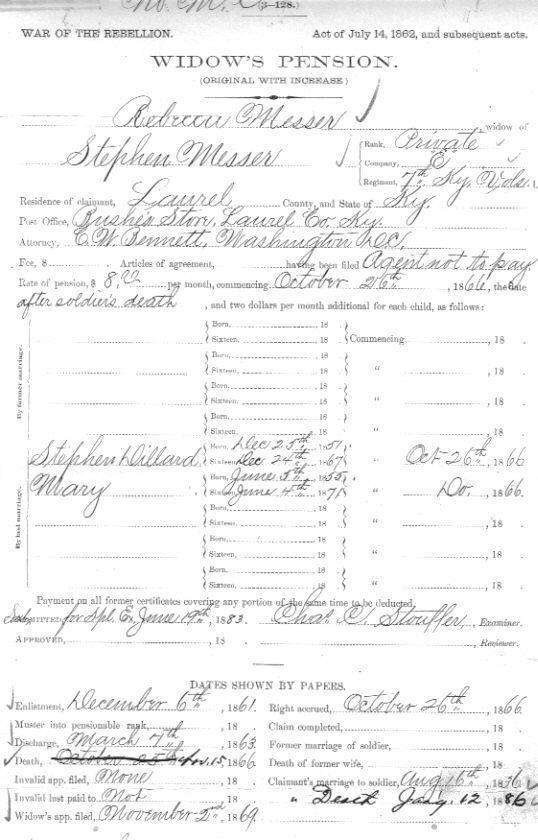 (3—128.)
WAR OF THE REBELLION. Act of July 14, 1862, and subsequent acts.
WIDOW'S PENSION.
(ORIGINAL WITH INCREASE)
Rebecca Messer, widow of
Stephen Messer
Rank, Private
Company, E
Regiment, 7th Ky. Vols.
Residence of claimant, Laurel County, and State of Ky.
Post Office, Bush's Store, Laurel Co. Ky.
Attorney, C. W. Bennett, Washington D.C.
Fee, $ Articles of agreement, having been filed Agent not to pay.
Rate of pension, $ 8.00 per month, commencing October 26th, 1866, the date
after soldier's death, and two dollars per month additional for each child, as follows:
By former marriage.
Born, 18
Sixteen, 18 Commencing , 18
Born, 18
Sixteen, 18 " , 18
Born, 18
Sixteen, 18 " , 18
Born, 18
Sixteen, 18 " , 18
By last marriage.
Born, Dec 25th 1851
Stephen Dillard, Sixteen, Dec 24th 1867 " Oct 26th, 1866
Born, June 5th 1855
Mary Sixteen, June 4th 1871 " Do. , 1866.
Born, 18
Sixteen, 18 " , 18
Born, 18
Sixteen, 18 " , 18
Born, 18
Sixteen, 18 " , 18
Payment on all former certificates covering any portion of the same time to be deducted.
Submitted for Spl. Ex June 19th, 1883. Chas. C. Stouffer, Examiner.
Approved, , 18 . Reviewer.
DATES SHOWN BY PAPERS.
Enlistment, December 6th, 1861. Right accrued, October 26th, 1866
Muster into pensionable rank, , 18 . Claim completed, , 18 .
Discharge, March 7th, 1863. Former marriage of soldier, , 18 .
Death, October 25th Nov. 15, 1866 Death of former wife, , 18 .
Invalid app. filed, None , 18 . Claimant's marriage to soldier, Aug 16th, 1836
Invalid last paid to Not , 18 . " Death Jany. 12, 1886
Widow's app. filed, November 2nd, 1869.